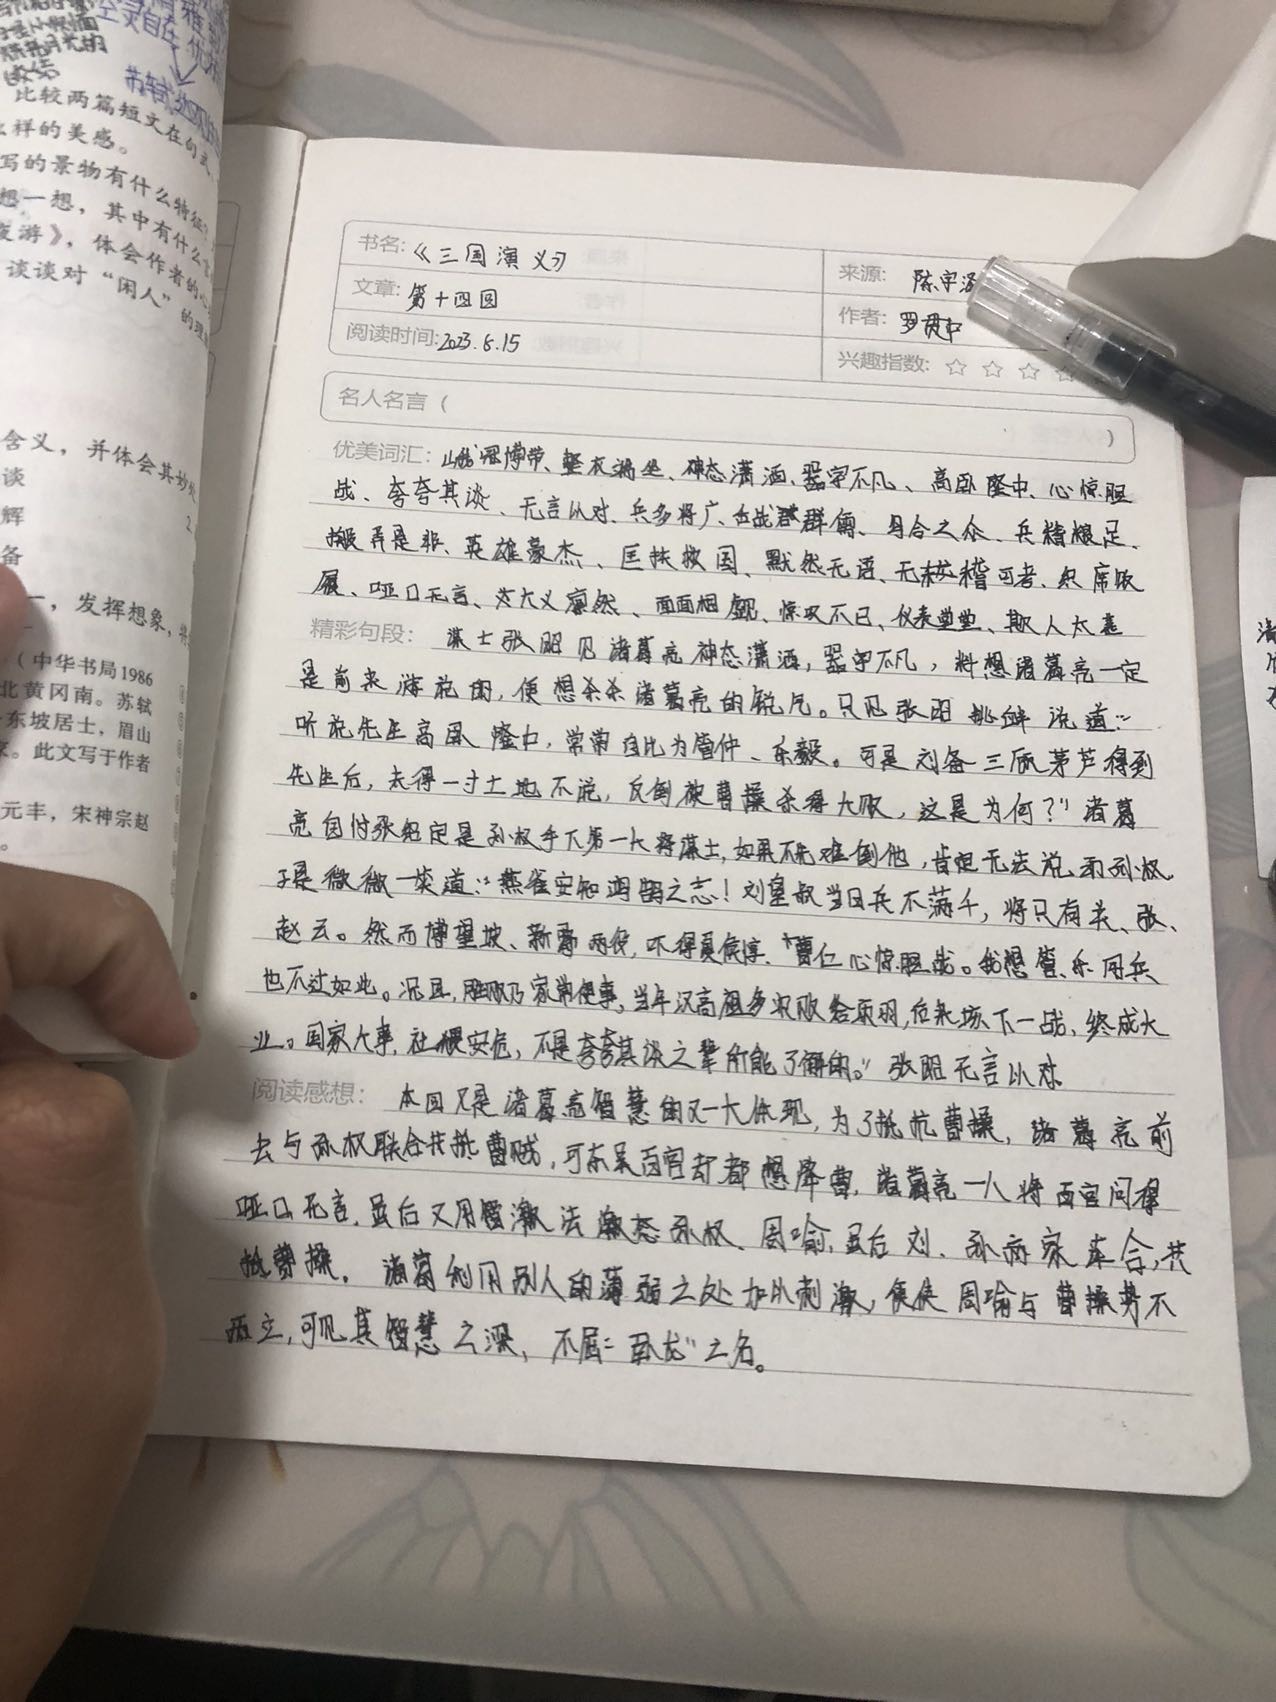 空灵自在
苏轼
比较两篇短文在句式
么样的美感。
写的景物有什么特征？
想一想，其中有什么言
夜游》，体会作者的心
谈谈对“闲人”的理
含义，并体会其妙处
谈
辉
备
一，发挥想象，
（中华书局1986
北黄冈南。苏轼
东坡居士，眉山
。此文写于作者
元丰，宋神宗赵
书名:《三国演义》
来源: 陈宇
文章: 第十四回
作者: 罗贯中
阅读时间:2023.8.15
兴趣指数: ☆ ☆ ☆ ☆
名人名言（ ）
优美词汇: 冠博带、整衣端坐、神态潇洒、器宇不凡、高卧隆中、心惊胆
战、夸夸其谈、无言以对、兵多将广、舌战群儒、乌合之众、兵精粮足、
搬弄是非、英雄豪杰、匡扶救国、默然无语、无稽可考、织席贩
屦、哑口无言、大义凛然、面面相觑、惊叹不已、仪表堂堂、欺人太甚
精彩句段: 谋士张昭见诸葛亮神态潇洒，器宇不凡，料想诸葛亮一定
是前来游说的，便想杀杀诸葛亮的锐气。只见张昭挑衅说道：“
听说先生高卧隆中，常常自比为管仲、乐毅。可是刘备三顾茅芦得到
先生后，夫得一寸土地不说，反倒被曹操杀得大败，这是为何？”诸葛
亮自忖张昭定是孙权手下第一大将谋士，如果不先难倒他，肯定无法说动孙权
于是微微一笑道：“燕雀安知鸿鹄之志！刘皇叔当日兵不满千，将只有关、张、
赵云。然而博望坡、新野两役，吓得夏侯惇、曹仁心惊胆战。我想管、乐用兵
也不过如此。况且，胜败乃家常便事，当年汉高祖多次败给项羽，后来垓下一战，终成大
业。国家大事，社稷安危，不是夸夸其谈之辈所能了解的。”张昭无言以对
阅读感想: 本回又是诸葛亮智慧的又一大体现，为了抵抗曹操，诸葛亮前
去与孙权联合共抵曹贼，可东吴百官却都想降曹，诸葛亮一人将百官问得
哑口无言，最后又用智激法激怒孙权、周喻，最后刘、孙两家连合，共
抵曹操。诸葛利用别人的薄弱之处加以刺激，使得周喻与曹操势不
两立，可见其智慧之深，不屈“卧龙”之名。